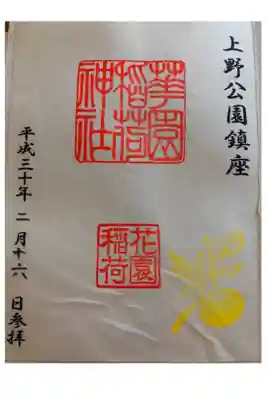 上野公園鎮座
華園
稲荷
神社
花園
稲荷
平成三十年 二月十六日参拝